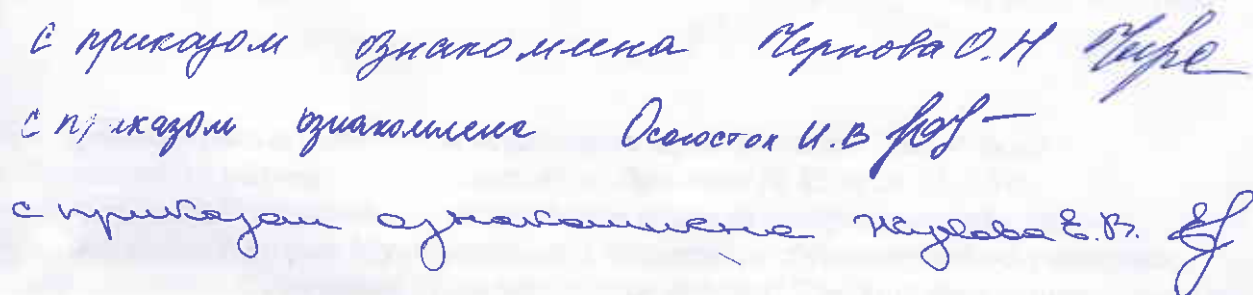 с приказом ознакомлена Чернова О.Н
с приказом ознакомлена И.В
с приказом ознакомлена Е.В.